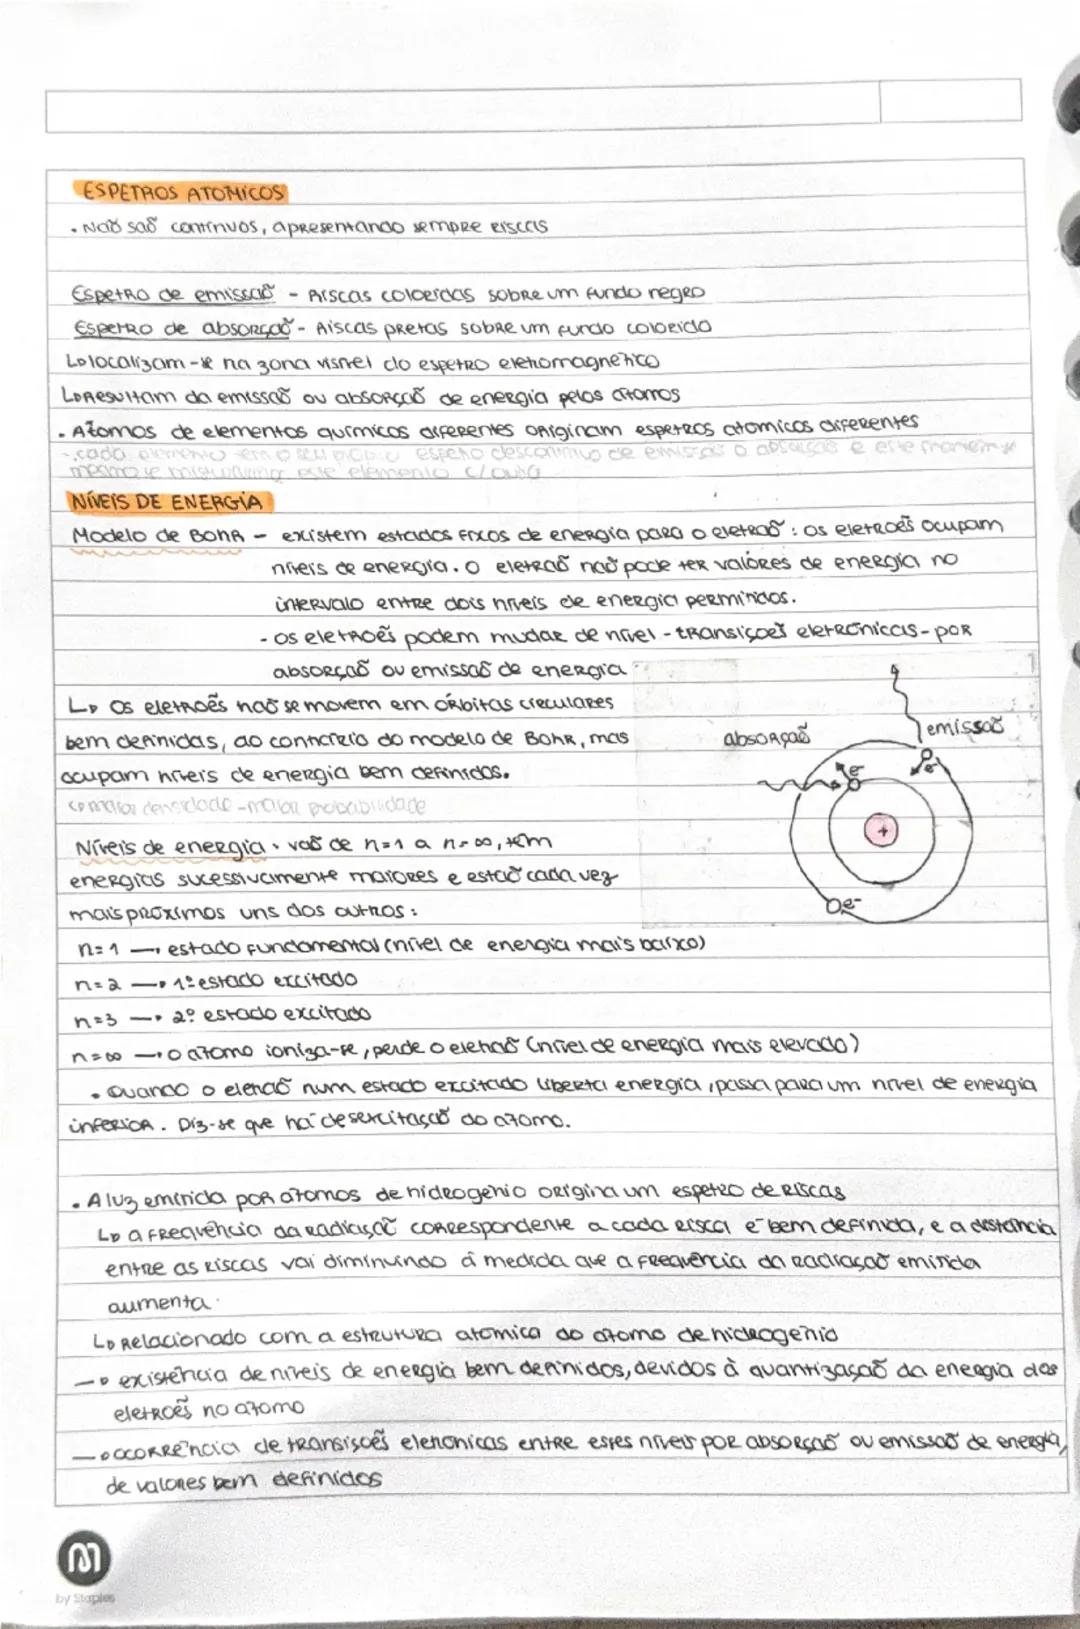 ESPETROS ATOMICOS
• Não são contínuos, apresentando sempre riscas
Espetro de emissão - Riscas coloridas sobre um fundo negro
Espetro de absorção - Riscas pretas sobre um fundo colorido
↳ localizam-se na zona visível do espetro eletromagnético
↳ Resultam da emissão ou absorção de energia pelos átomos
• Átomos de elementos químicos diferentes originam espetros atomicos diferentes
- cada elemento tem o seu espetro descontínuo de emissão o absorção e este mantem-se
mesmo se misturarmos este elemento c/ outro
NÍVEIS DE ENERGIA
Modelo de Bohr - existem estados fixos de energia para o eletrão : os eletrões ocupam
níveis de energia. O eletrão não pode ter valores de energia no
intervalo entre dois níveis de energia permitidos.
- os eletrões podem mudar de nível - transições eletrónicas - por
absorção ou emissão de energia
↳ Os eletrões não se movem em órbitas circulares
bem definidas, ao contrário do modelo de Bohr, mas
ocupam níveis de energia bem definidos.
↳ maior densidade - maior probabilidade
absorção
emissão
e-
e-
+
e-
Níveis de energia • vão de n=1 a n=∞, têm
energias sucessivamente maiores e estão cada vez
mais próximos uns dos outros :
n=1 → estado fundamental (nível de energia mais baixo)
n=2 → 1º estado excitado
n=3 → 2º estado excitado
n=∞ → o átomo ioniza-se, perde o eletrão (nível de energia mais elevado)
• Quando o eletrão num estado excitado liberta energia, passa para um nível de energia
inferior. Diz-se que há desexcitação do átomo.
• A luz emitida por átomos de hidrogénio origina um espetro de riscas
↳ a frequência da radiação correspondente a cada risca é bem definida, e a distância
entre as riscas vai diminuindo à medida que a frequência da radiação emitida
aumenta.
↳ Relacionado com a estrutura atómica do átomo de hidrogénio
→ existência de níveis de energia bem definidos, devidos à quantização da energia dos
eletrões no átomo
→ ocorrência de transições eletrónicas entre esses níveis por absorção ou emissão de energia,
de valores bem definidos
by Staples